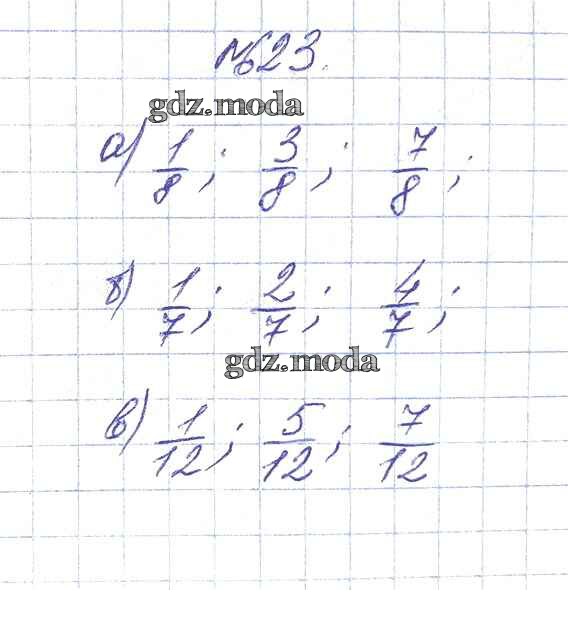 №23.
gdz.moda
а) 1/8; 3/8; 7/8;
б) 1/7; 2/7; 4/7;
gdz.moda
в) 1/12; 5/12; 7/12